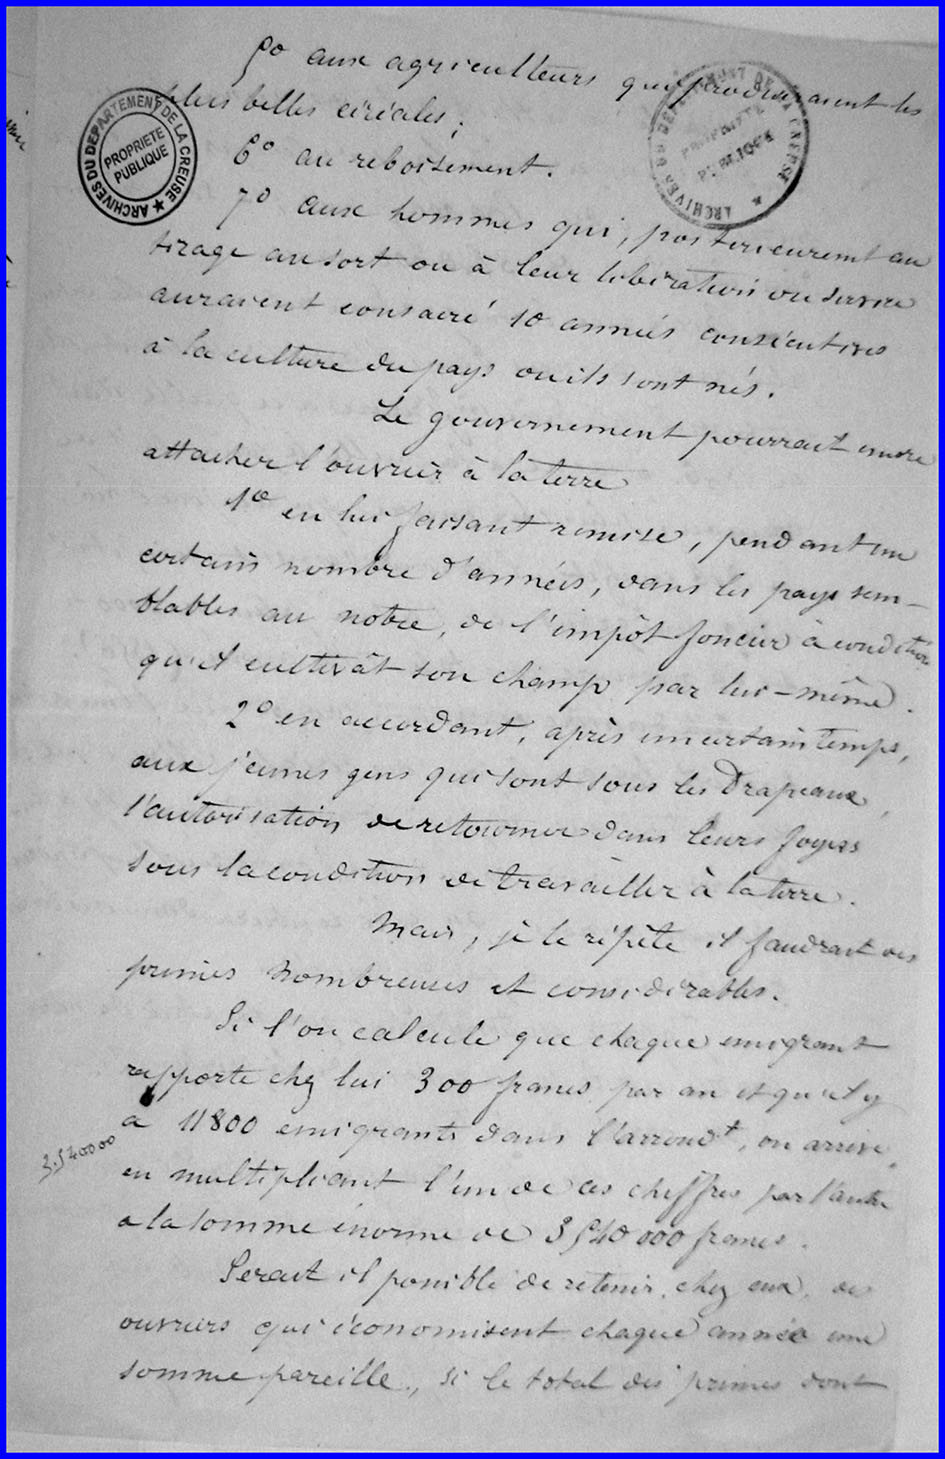 5° aux agriculteurs qui produiraient les
plus belles céréales;
6° au reboisement.
7° aux hommes qui, postérieurement au
tirage au sort ou à leur libération du service
auraient consacré 10 années consécutives
à la culture du pays où ils sont nés.
Le gouvernement pourrait encore
attacher l'ouvrier à la terre
1° en lui faisant remise, pendant un
certain nombre d'années, dans les pays sem-
blables au notre, de l'impôt foncier à condition
qu'il cultivât son champ par lui-même.
2° en accordant, après un certain temps,
aux jeunes gens qui sont sous les Drapeaux,
l'autorisation de retourner dans leurs foyers
sous la condition de travailler à la terre.
Mais, je le répète il faudrait des
primes nombreuses et considérables.
Si l'on calcule que chaque émigrant
rapporte chez lui 300 francs par an et qu'il y
a 11800 émigrants dans l'arrondt, on arrive,
en multipliant l'un de ces chiffres par l'autre
a la somme énorme de 3540000 francs.
Serait il possible de retenir chez eux, des
ouvriers qui économisent chaque année une
somme pareille, si le total des primes dont
3.540000
ARCHIVES DU DEPARTEMENT DE LA CREUSE
PROPRIETE
PUBLIQUE
ARCHIVES DU DEPARTEMENT DE LA CREUSE
PROPRIETE
PUBLIQUE